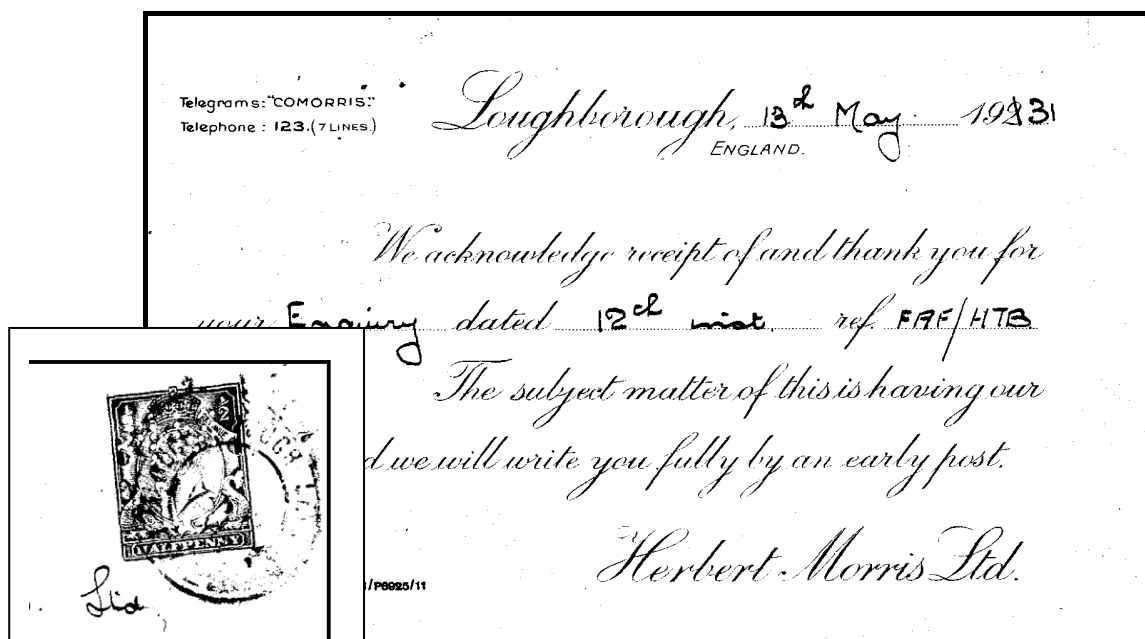 Telegrams: "COMORRIS."
Telephone: 123. (7 LINES.)
Loughborough, 13th May. 19231
ENGLAND.
We acknowledge receipt of and thank you for
your Enquiry dated 12th inst. ref. FAF/HTB
The subject matter of this is having our
d we will write you fully by an early post.
Herbert Morris Ltd.
/P6925/11
HALFPENNY
Ltd,